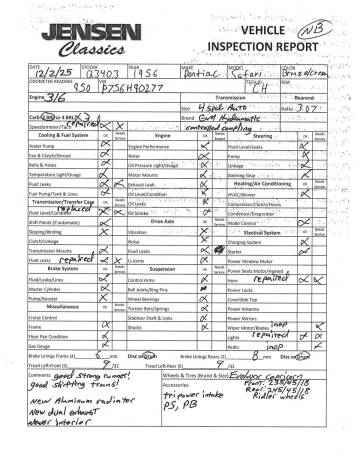 JENSEN
Classics
VEHICLE
INSPECTION REPORT
NB
DATE STOCK# YEAR MAKE MODEL COLOR
12/2/25 Q3403 1956 Pontiac Safari Bronze/Cream
ODOMETER READING VIN TECH ID
950 P756H90277 CH
Engine 316 Transmission Rearend
Size 4 Spd Auto Ratio 3.07
Carb 2 BBl or 4 BBl X 3 Brand GM Hydramatic
Speedometer/Tach repaired controlled coupling
Cooling & Fuel System OK Needs Service Engine OK Needs Service Steering OK Needs Service
Water Pump Engine Performance Fluid Level/Leaks
Fan & Clutch/Shroud Noise Pump
Belts & Hoses Oil Pressure Light/Guage Linkage
Temperature Light/Guage Motor Mounts Steering Gear
Fluid Leaks Exhaust Leak Heating/Air Conditioning
Fuel Pump/Tank & Lines Oil Condition/Level HVAC/Blower
Transmission/Transfer Case Oil Leaks Compressor/Clutch/Hoses
Fluid Level/Condition repaired Oil Smoke Condensor/Evaporator
Shift Points (if automatic) Drive Axle Mode Control
Slipping/Binding Vibration Electrical System
Clutch/Linkage Noise Charging System
Transmission Mounts Fluid Leaks Starter
Fluid Leaks repaired U Joints Power Window Motor
Brake System Suspension Power Seats Motor/Heated
Fluid/Leaks/Lines Control Arms Horn repaired
Master Cylinder Ball Joints/King Pins Power Locks
Pump/Booster Wheel Bearings Covertible Top
Miscellaneous Torsion Bars/Springs Power Antenna
Cruise Control Stabilizer Shaft & Links Power Mirrors
Frame Shocks Wiper Motor/Blades inop
Floor Pan Condition Lights repaired
Gas Gauge Radio inop
Brake Linings Fronts (4) 6 mm Disc or Drum Brake Linings Rears (2) 8 mm Disc or Drum
Tread Left-Front (5) 9 /32 Tread Left-Rear (5) 9 /32
Comments: good strong runner!
good shifting trans!
New Aluminum radiator
New dual exhaust
Newer interior
Wheels & Tires (Brand & Size) Evoluxx Capricorn
Front: 235/45/18
Rear: 245/45/18
Ridler wheels
Accessories
tripower intake
PS, PB